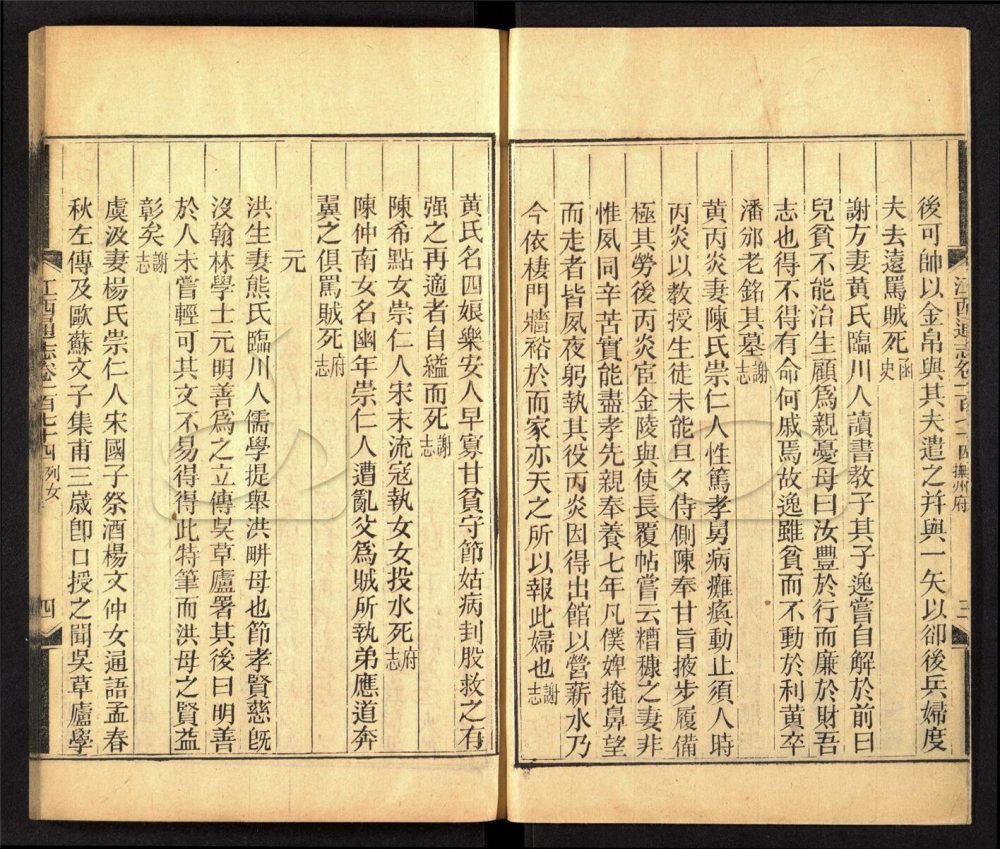 後可帥以金帛與其夫遣之幷與一矢以卻後兵婦度
夫去遠罵賊死函史
謝方妻黄氏臨川人讀書敎子其子逸嘗自解於前曰
兒貧不能治生顧爲親憂母曰汝豐於行而廉於財吾
志也得不得有命何戚焉故逸雖貧而不動於利黄卒
潘邠老銘其墓謝志
黄丙炎妻陳氏崇仁人性篤孝舅病癱瘓動止須人時
丙炎以敎授生徒未能旦夕侍側陳奉甘旨掖步履備
極其勞後丙炎官金陵與使長覆帖嘗云糟穅之妻非
惟夙同辛苦實能盡孝先親奉養七年凡僕婢掩鼻望
而走者皆夙夜躬執其役丙炎因得出館以營薪水乃
今依棲門牆裕於而家亦天之所以報此婦也謝志
江西通志卷一百七十四 撫州府 三
黄氏名四娘樂安人早寡甘貧守節姑病封股救之有
强之再適者自縊而死謝志
陳希點女崇仁人宋末流寇執女女投水死府志
陳仲南女名幽年崇仁人遭亂父爲賊所執弟應道奔
翼之俱罵賊死府志
元
洪生妻熊氏臨川人儒學提舉洪畊母也節孝賢慈旣
沒翰林學士元明善爲之立傳吳草廬署其後曰明善
於人未嘗輕可其文不易得得此特筆而洪母之賢益
彰矣謝志
虞汲妻楊氏崇仁人宋國子祭酒楊文仲女通語孟春
秋左傳及歐蘇文子集甫三歲卽口授之聞吳草廬學
江西通志卷一百七十四 列女 四